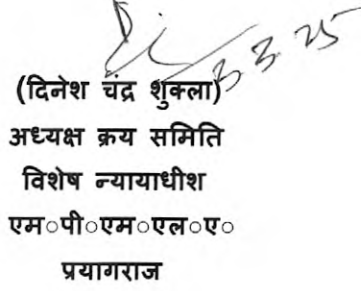 3.3.25
(दिनेश चंद्र शुक्ला)
अध्यक्ष क्रय समिति
विशेष न्यायाधीश
एम०पी०एम०एल०ए०
प्रयागराज